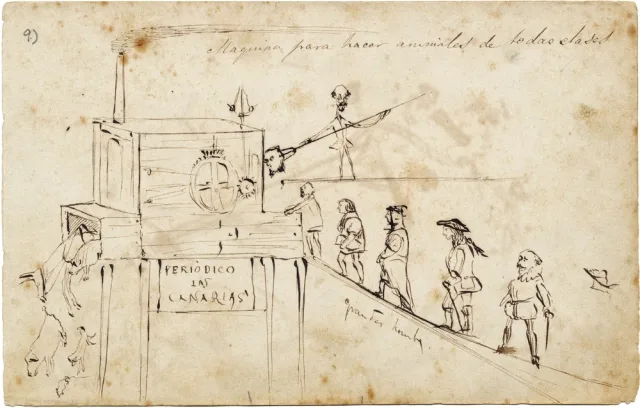 9)
Maquina para hacer animales de todas clases
PERIÓDICO
LAS
CANARIAS
grandes